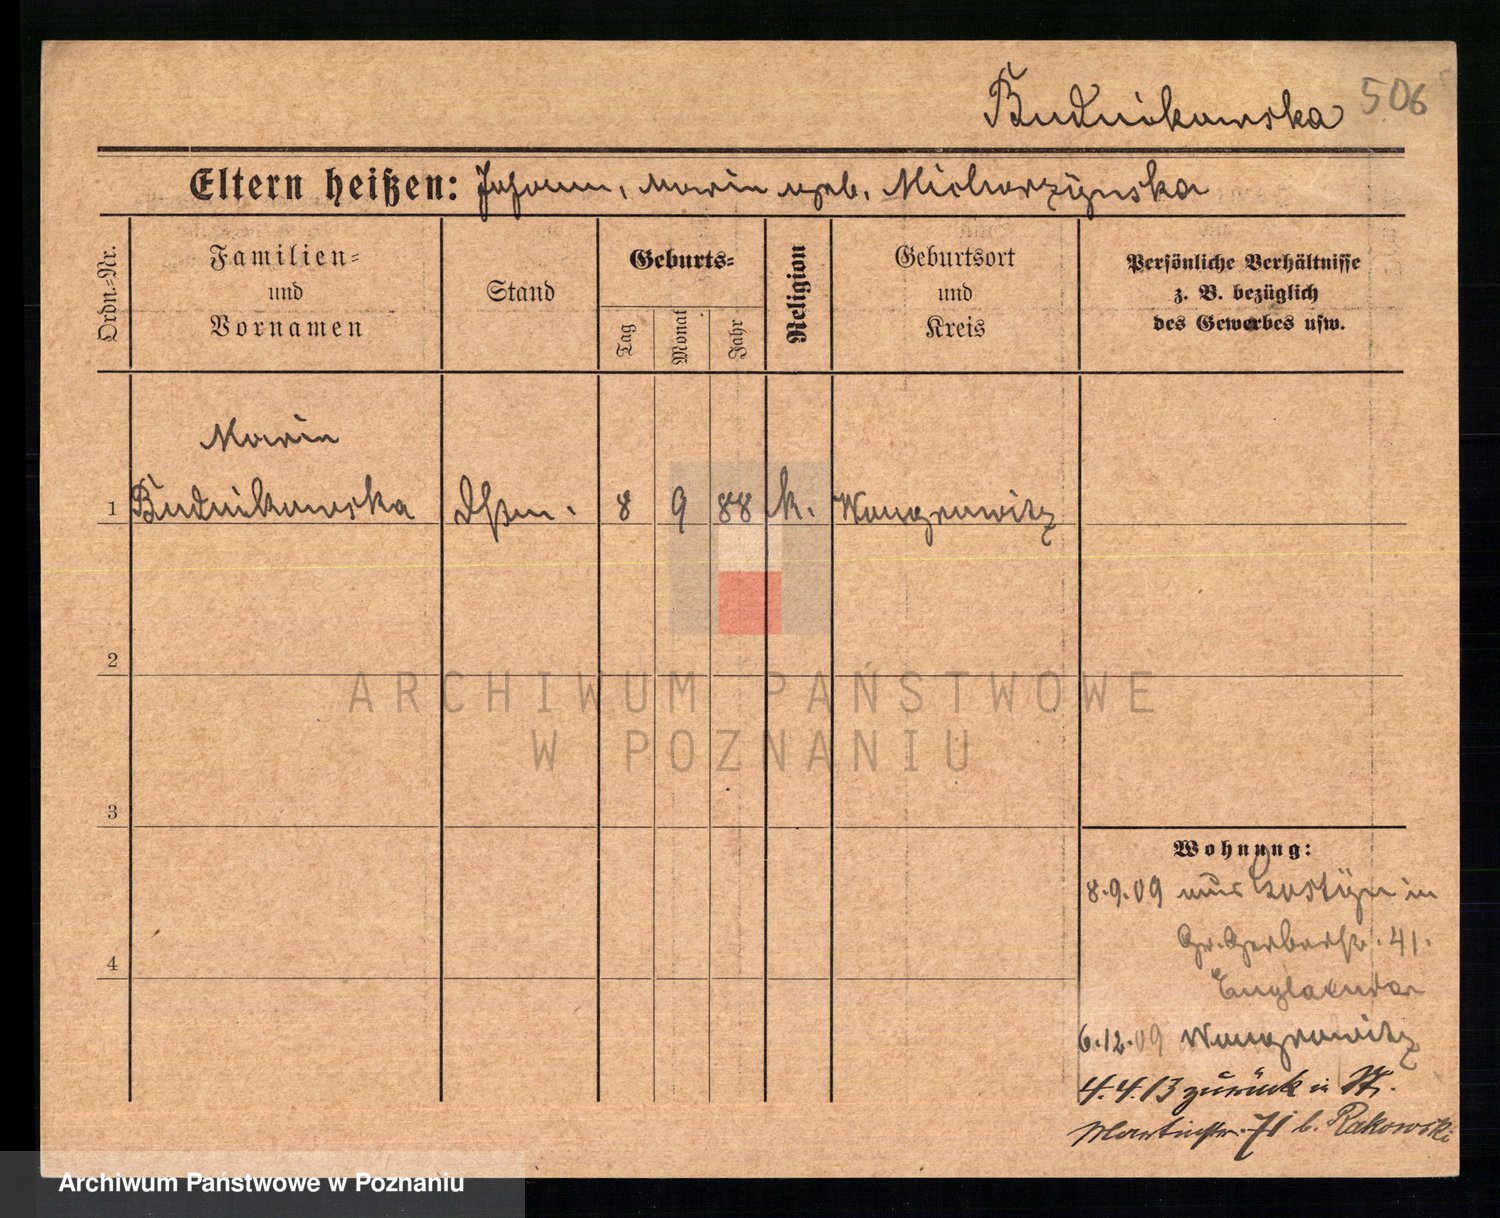 Budnikowska 506
Eltern heißen: Johann, Marie geb. Michorzynska
Ordn.-Nr.
Familien-
und
Vornamen
Stand
Geburts-
Tag
Monat
Jahr
Religion
Geburtsort
und
Kreis
Persönliche Verhältnisse
z. B. bezüglich
des Gewerbes usw.
Marie
1 Budnikowska 8 9 88 k. Wongrowitz
2
ARCHIWUM PAŃSTWOWE
W POZNANIU
3
Wohnung:
8.9.09 aus Gostyn in
Gr. Gerberstr. 41.
4
6.12.09 Wongrowitz
4.4.13 zurück in St.
Martinstr. 71 b. Rakowski
Archiwum Państwowe w Poznaniu